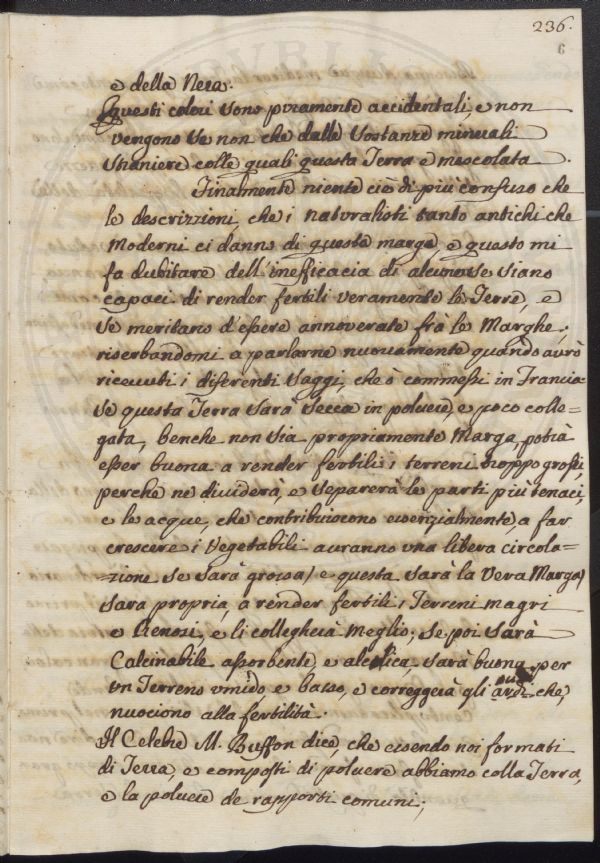 236.
6
e della Nera.
Questi colori sono puramente accidentali, e non
vengono se non che dalle Sostanze minerali
straniere colle quali questa Terra è mescolata.
Finalmente niente ciò di più confuso che
le descrizzioni, che i naturalisti tanto antichi che
Moderni ci danno di queste marghe, e questo mi
fa dubitare dell'inefficacia di alcune se siano
capaci di render fertili veramente le Terre, e
se meritano d'essere annoverate frà le Marghe;
riserbandomi a parlarne nuovamente quando avrò
ricevuti i diferenti Saggi, che ò commessi in Francia-
Se questa Terra sarà secca in polvere, e poco colle=
gata, benche non sia propriamente Marga, potrà
esser buona a render fertili i terreni troppo grossi,
perche ne dividerà, e separerà le parti più tenaci,
e le acque, che contribuiscono essenzialmente, a far
crescere i Vegetabili auranno una libera circola=
=zione se sarà grossa) e questa sarà la Vera Marga)
sara propria, a render fertili i Terreni magri
e Renosi, e li collegherà meglio; se poi sarà
Calcinabile assorbente, e alcalica, sarà buona per
un Terreno umido, e basso, e correggerà gli acidi che,
nuociono alla fertilità.
Il Celebre M. Buffon dice, che essendo noi formati
di Terra, e composti di polvere abbiamo colla Terra,
e la polvere de rapporti comuni;